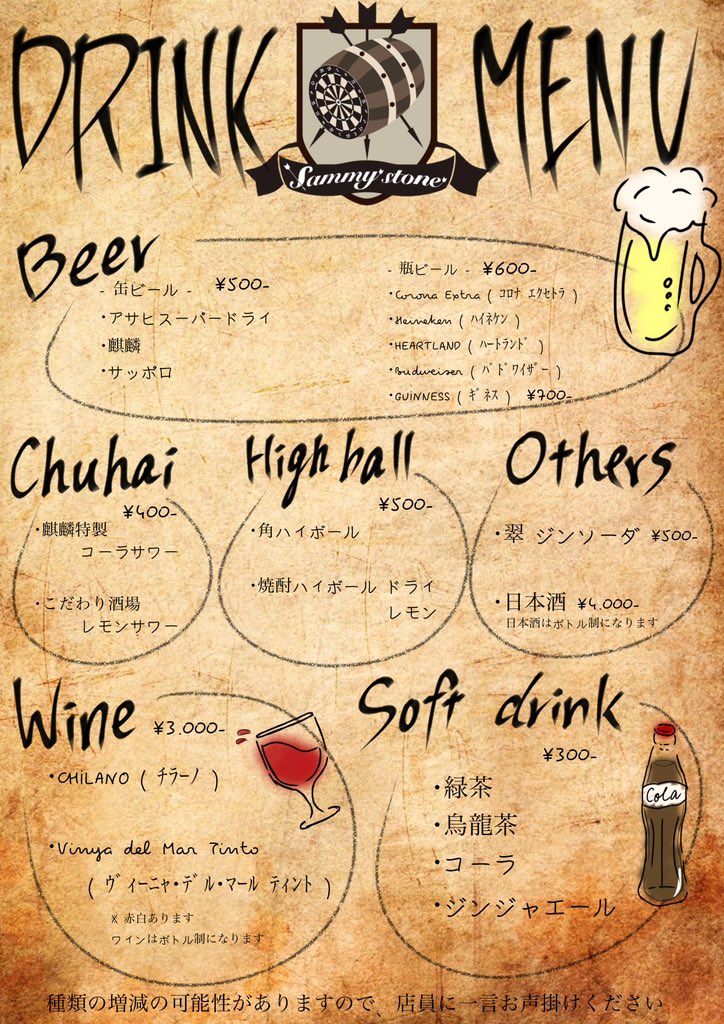 DRINK MENU
Sammy'stone
Beer
- 缶ビール - ¥500-
・アサヒスーパードライ
・麒麟
・サッポロ
- 瓶ビール - ¥600-
・Corona Extra ( コロナ エクセトラ )
・Heineken ( ハイネケン )
・HEARTLAND ( ハートランド )
・Budweiser ( バドワイザー )
・GUINNESS ( ギネス ) ¥700-
Chuhai
¥400-
・麒麟特製
コーラサワー
・こだわり酒場
レモンサワー
High ball
¥500-
・角ハイボール
・焼酎ハイボール ドライ
レモン
Others
・翠 ジンソーダ ¥500-
・日本酒 ¥4.000-
日本酒はボトル制になります
Wine ¥3.000-
・CHILANO ( チラーノ )
・Vinya del Mar Tinto
( ヴィーニャ・デル・マール ティント )
※ 赤白あります
ワインはボトル制になります
Soft drink
¥300-
・緑茶
・烏龍茶
・コーラ
・ジンジャエール
Cola
種類の増減の可能性がありますので、店員に一言お声掛けください